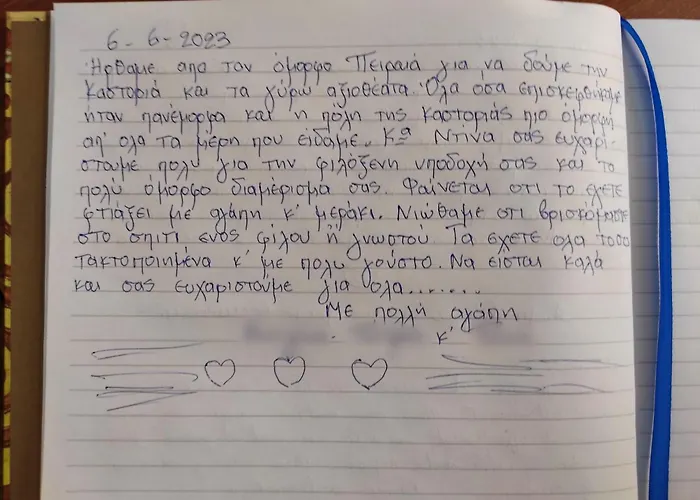 6-6-2023
Ήρθαμε απο τον όμορφο Πειραιά για να δούμε την
Καστοριά και τα γύρω αξιοθέατα. Όλα όσα επισκεφθήκαμε
ήταν πανέμορφα και η πόλη της Καστοριάς πιο όμορφη
απ' όλα τα μέρη που είδαμε. Κα Ντίνα σας ευχαρι-
στούμε πολύ για την φιλόξενη υποδοχή σας και το
πολύ όμορφο διαμέρισμα σας. Φαίνεται οτι το έχετε
φτιάξει με αγάπη κ' μεράκι. Νιώθαμε οτι βρισκόμαστε
στο σπίτι ενος φίλου ή γνωστού. Τα έχετε ολα τοσο
τακτοποιημένα κ' με πολυ γούστο. Να είσται καλά
και σας ευχαριστούμε για ολα........
Με πολλή αγάπη
κ'